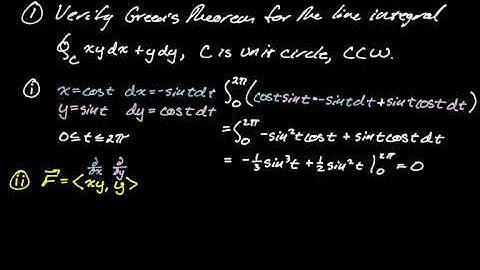 ① Verify Green's Theorem for the line integral
∮_C xy dx + y dy, C is unit circle, CCW.
ⓘ x = cos t dx = -sin t dt ∫_0^{2π} (cos t sin t · -sin t dt + sin t cos t dt)
y = sin t dy = cos t dt
0 ≤ t ≤ 2π = ∫_0^{2π} -sin² t cos t + sin t cos t dt
= -1/3 sin³ t + 1/2 sin² t |_0^{2π} = 0
∂/∂x ∂/∂y
ⓘⓘ F⃗ = <xy, y>